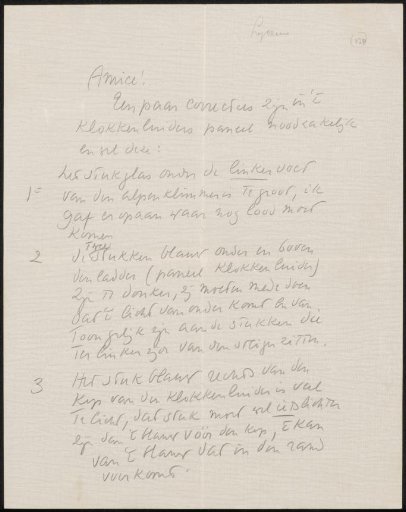 Amice!
Een paar correcties zijn in 't
klokkenluiders paneel noodzakelijk
en wel deze:
1= het stuk glas onder de linker voet
van den alpenklimmer is te groot, ik
gaf er op aan waar nog lood moet
komen
2 de twee stukken blauw onder en boven
den ladder (paneel klokkenluider)
zijn te donker, zij moeten mede doen
dat 't licht van onder komt en van
toon gelijk zijn aan de stukken die
ter linker zijde van den steiger zitten.
3 Het stuk blauw rechts van den
kop van den klokkenluider is veel
te licht, dat stuk moet wel iets lichter
zijn dan 't blauw vóór den kop, 't kan
van 't blauw dat in den rand
voorkomt.